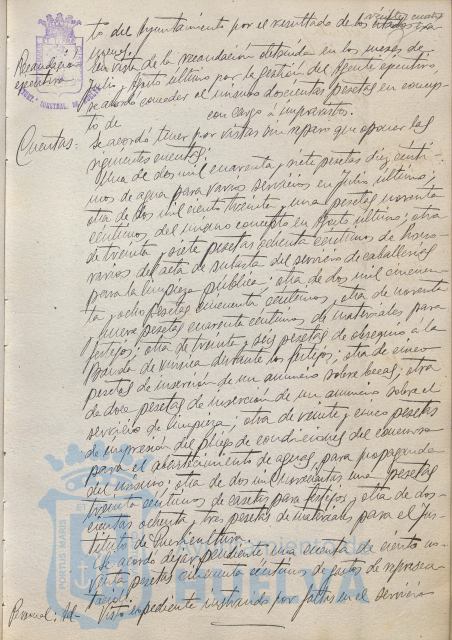 veintey cuatro
to del Ayuntamiento por el resultado de los citados
Recaudación
ejecutiva
En vista de la recaudación obtenida en los meses de
Julio y Agosto último por la gestión del Agente ejecutivo
se acordó conceder al mismo doscientas pesetas en concep-
to de con cargo a imprevistos.
Cuentas:
Se acordó tener por vistas sin reparo que oponer las
siguientes cuentas:
Una de dos mil cuarenta y siete pesetas diez cénti-
mos de agua para varios servicios en Julio último;
otra de dos mil ciento treinta y una pesetas noventa
céntimos del mismo concepto en Agosto último; otra
de treinta y siete pesetas ochenta céntimos de
del acta de subasta del servicio de caballerías
para la limpieza pública; otra de dos mil cincuen-
ta y ocho pesetas cincuenta céntimos; otra de noventa
y nueve pesetas cuarenta céntimos de materiales para
festejos; otra de treinta y seis pesetas de obsequio a la
Banda de música durante los festejos; otra de cinco
pesetas de inserción de un anuncio sobre becas; otra
de doce pesetas de inserción de un anuncio sobre el
servicio de limpieza; otra de veinte y cinco pesetas
de impresión del pliego de condiciones del concurso
para el abastecimiento de aguas, para propaganda
del mismo; otra de dos mil una pesetas
treinta céntimos de casetas para festejos y otra de dos-
cientas ochenta y tres pesetas de materiales para el Ins-
tituto de Puericultura.
Se acordó dejar pendiente una cuenta de ciento no-
venta pesetas cincuenta céntimos de gastos de represen-
tación.
Personal: Visto expediente instruido por faltas en el servicio
PORTUS MARIS ET
Ayuntamiento de
HUELVA